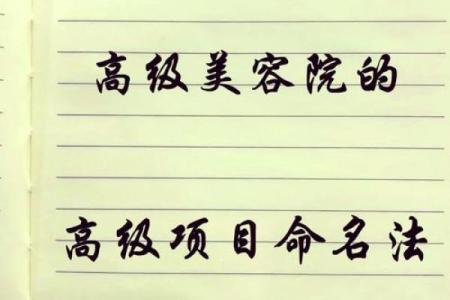 高级美容院的
高级项目命名法